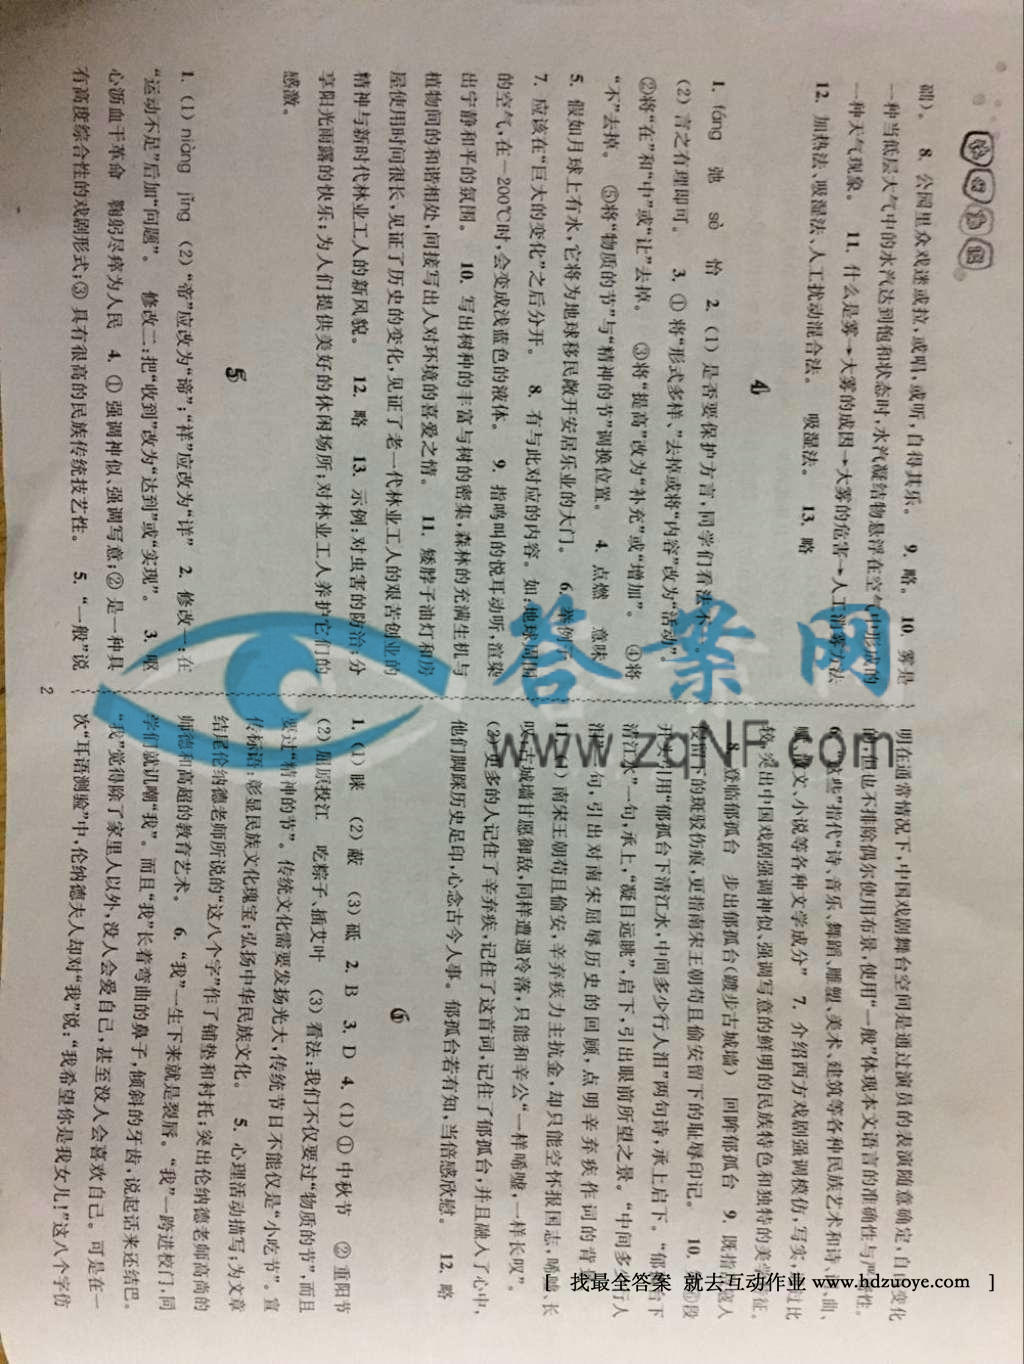 参考答案
础)。 8. 公园里众戏迷或拉,或唱,或听,自得其乐。 9. 略。 10. 雾是
一种当低层大气中的水汽达到饱和状态时,水汽凝结物悬浮在空气中形成的
一种天气现象。 11. 什么是雾→大雾的成因→大雾的危害→人工消雾方法
12. 加热法、吸湿法、人工扰动混合法。 吸湿法。 13. 略
4
1. fáng 弛 sè 恰 2. (1) 是否要保护方言,同学们看法不一。
(2) 言之有理即可。 3. ① 将“形式多样、”去掉或将“内容”改为“活动”。
②将“在”和“中”或“让”去掉。 ③将“提高”改为“补充”或“增加”。 ④将
“不”去掉。 ⑤将“物质的节”与“精神的节”调换位置。 4. 点燃 意味
5. 假如月球上有水,它将为地球移民敞开安居乐业的大门。 6. 举例子
7. 应该在“巨大的变化”之后分开。 8. 有与此对应的内容。如,地球周围
的空气,在—200℃时,会变成浅蓝色的液体。 9. 指鸣叫的悦耳动听,渲染
出宁静和平的氛围。 10. 写出树种的丰富与树的密集,森林的充满生机与
植物间的和谐相处,间接写出人对环境的喜爱之情。 11. 矮脖子油灯和房
屋使用时间很长,见证了历史的变化,见证了老一代林业工人的艰苦创业的
精神与新时代林业工人的新风貌。 12. 略 13. 示例:对虫害的防治;分
享阳光雨露的快乐;为人们提供美好的休闲场所;对林业工人养护它们的
感激。
5
1. (1) niàng jīng (2) “帝”应改为“谛”;“祥”应改为“详” 2. 修改一:在
“运动不足”后加“问题”。 修改二:把“收到”改为“达到”或“实现”。 3. 呕
心沥血干革命 鞠躬尽瘁为人民 4. ① 强调神似、强调写意;② 是一种具
有高度综合性的戏剧形式;③ 具有很高的民族传统技艺性。 5. “一般”说
明在通常情况下,中国戏剧舞台空间是通过演员的表演随意确定,自由变化
的,但也不排除偶尔使用布景,使用“一般”体现本文语言的准确性与严密性。
6. “这些”指代“诗、音乐、舞蹈、雕塑、美术、建筑等各种民族艺术和诗、词、曲、
赋、散文、小说等各种文学成分” 7. 介绍西方戏剧强调模仿,写实,通过比
较,突出中国戏剧强调神似、强调写意的鲜明的民族特色和独特的美学特征。
8. 登临郁孤台 步出郁孤台(踱步古城墙) 回眸郁孤台 9. 既指侵略人
侵留下的斑驳伤痕,更指南宋王朝苟且偷安留下的耻辱印记。 10. 第①段
开头引用“郁孤台下清江水,中间多少行人泪”两句诗,承上启下。“郁孤台下
清江水”一句,承上,“凝目远眺”,启下,引出眼前所望之景。“中间多少行人
泪”一句,引出对南宋屈辱历史的回顾,点明辛弃疾作词的背景。
11. (1) 南宋王朝苟且偷安,辛弃疾力主抗金,却只能空怀报国志,唏嘘、长
叹;古城墙甘愿御敌,同样遭遇冷落,只能和辛公“一样唏嘘,一样长叹”。
(2) 更多的人记住了辛弃疾,记住了这首词,记住了郁孤台,并且融入了心中,
他们脚踩历史足印,心念古今人事。郁孤台若有知,当倍感欣慰。 12. 略
6
1. (1) 眯 (2) 蔽 (3) 砥 2. B 3. D 4. (1) ① 中秋节 ② 重阳节
(2) 屈原投江 吃粽子、插艾叶 (3) 看法:我们不仅要过“物质的节”,而且
要过“精神的节”。传统文化需要发扬光大,传统节日不能仅是“小吃节”。宣
传标语:彰显民族文化瑰宝;弘扬中华民族文化。 5. 心理活动描写;为文章
结尾伦纳德老师所说的“这八个字”作了铺垫和衬托;突出伦纳德老师高尚的
师德和高超的教育艺术。 6. “我”一生下来就是裂唇。“我”一跨进校门,同
学们就讥嘲“我”。而且“我”长着弯曲的鼻子,倾斜的牙齿,说起话来还结巴。
“我”觉得除了家里人以外,没人会爱自己,甚至没人会喜欢自己。可是在一
次“耳语测验”中,伦纳德夫人却对“我”说:“我希望你是我女儿!”这八个字仿
2
答案网
www.zqNF.com
[ 找最全答案 就去互动作业 www.hdzuoye.com ]